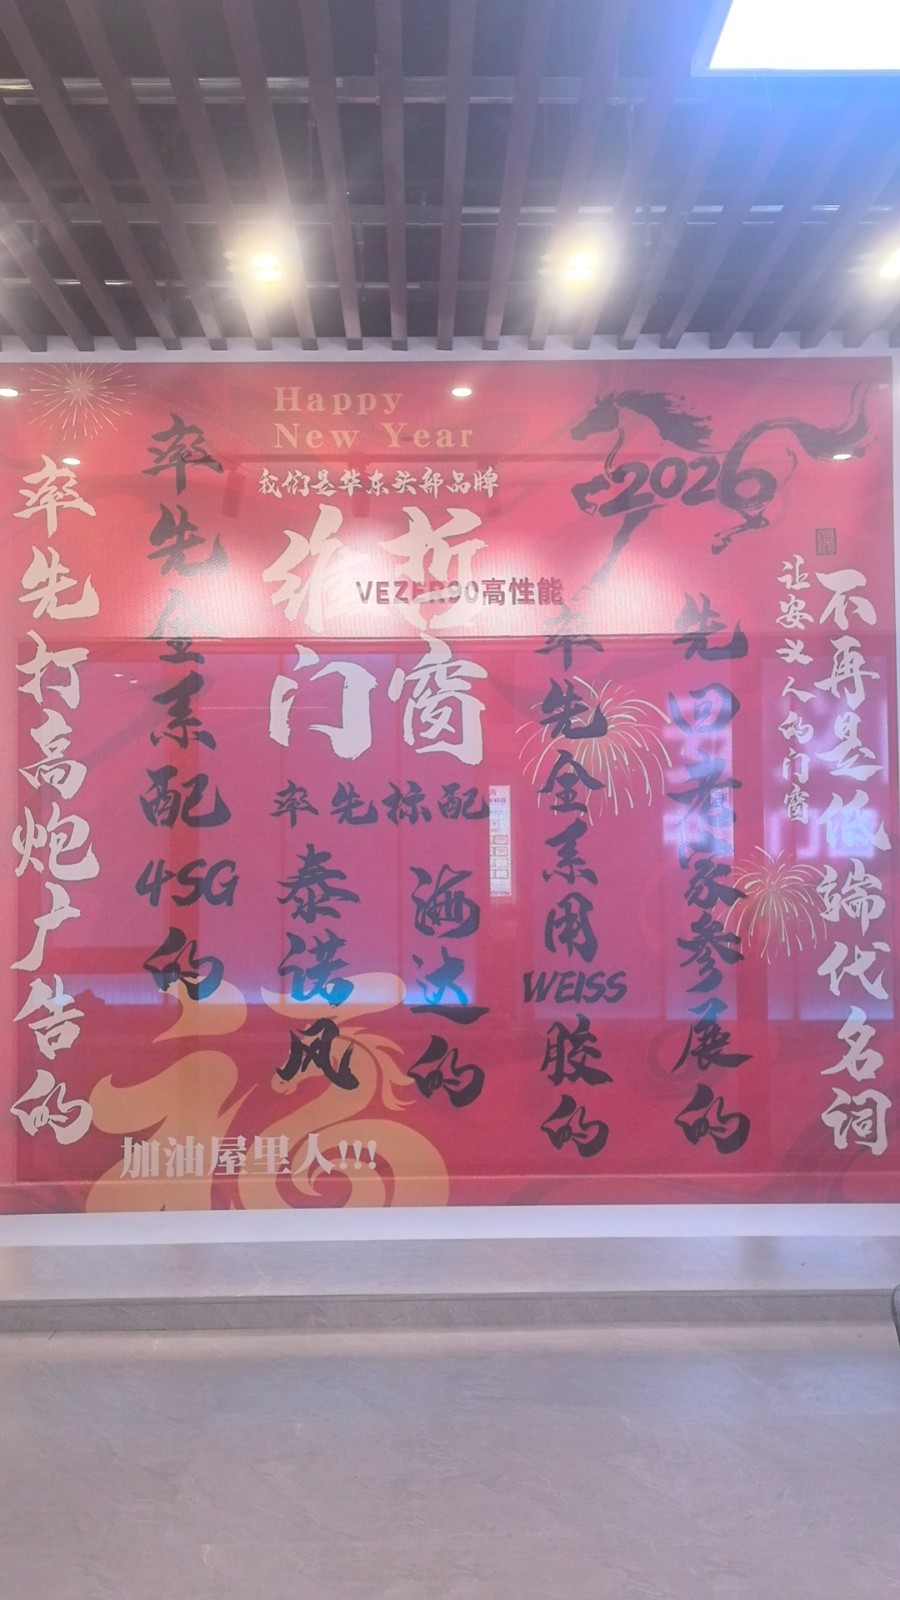 Happy
New Year
我们是华东头部品牌
维哲
门窗
VEZER90高性能
2026
率先打高炮广告的
率先全系配4SG的
率先标配
泰诺风
海达的
率先全系用WEISS胶的
先回老家参展的
让安义人的门窗
不再是低端代名词
加油屋里人!!!